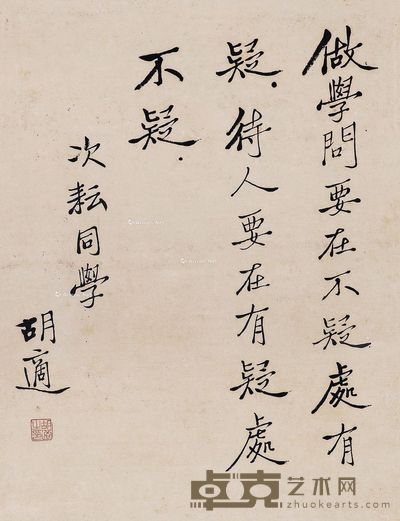 做學問要在不疑處有
疑.待人要在有疑處
不疑.
次耘同學
胡適
卓克艺术网
zhuokearts.com